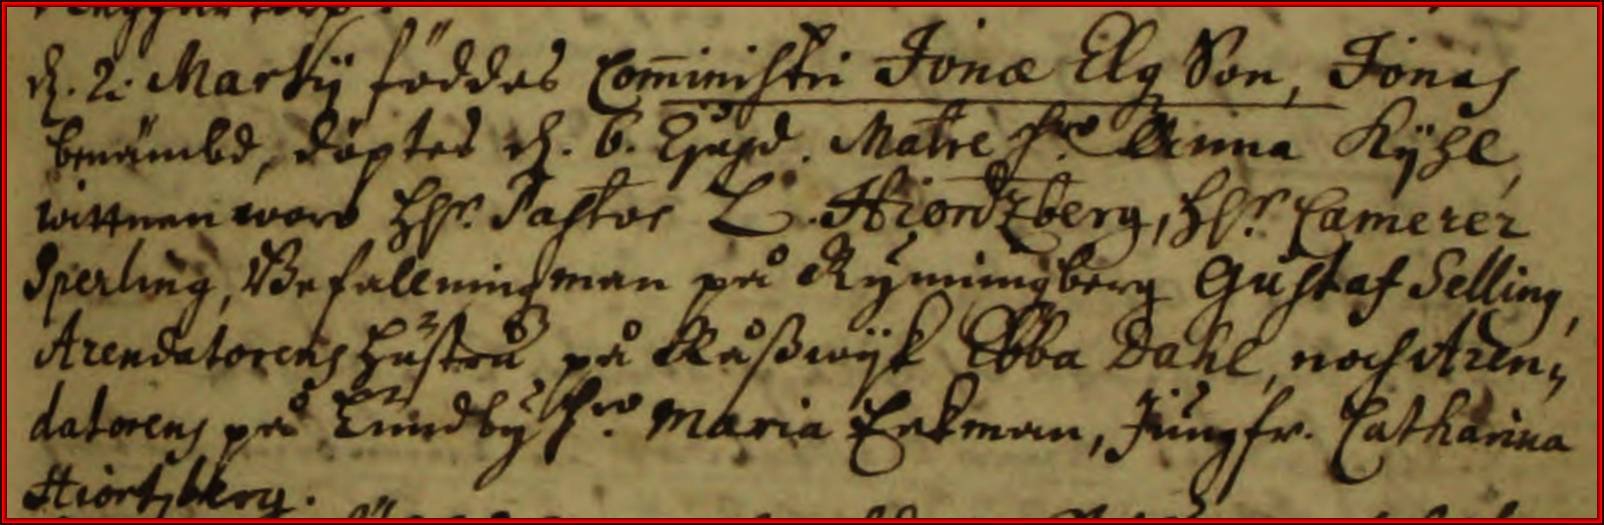 d. 2. Martij föddes Comministri Jonæ Elg Son, Jonas
benämbd, döptes d. 6. Ejusd. Matre Hr. Anna Kÿhl,
wittnen woro HHr. Pastor L. Hiordzberg, HHr. Camerer
Sperling, Befallningzman på Rÿningzberg Gustaf Selling,
Arendatorens Hustru på Råßwÿk Ebba Dahl, noch Aren,,
datorens på Lundbÿ H:o Maria Eekman, Jungfr. Catharina
Hiortzberg.